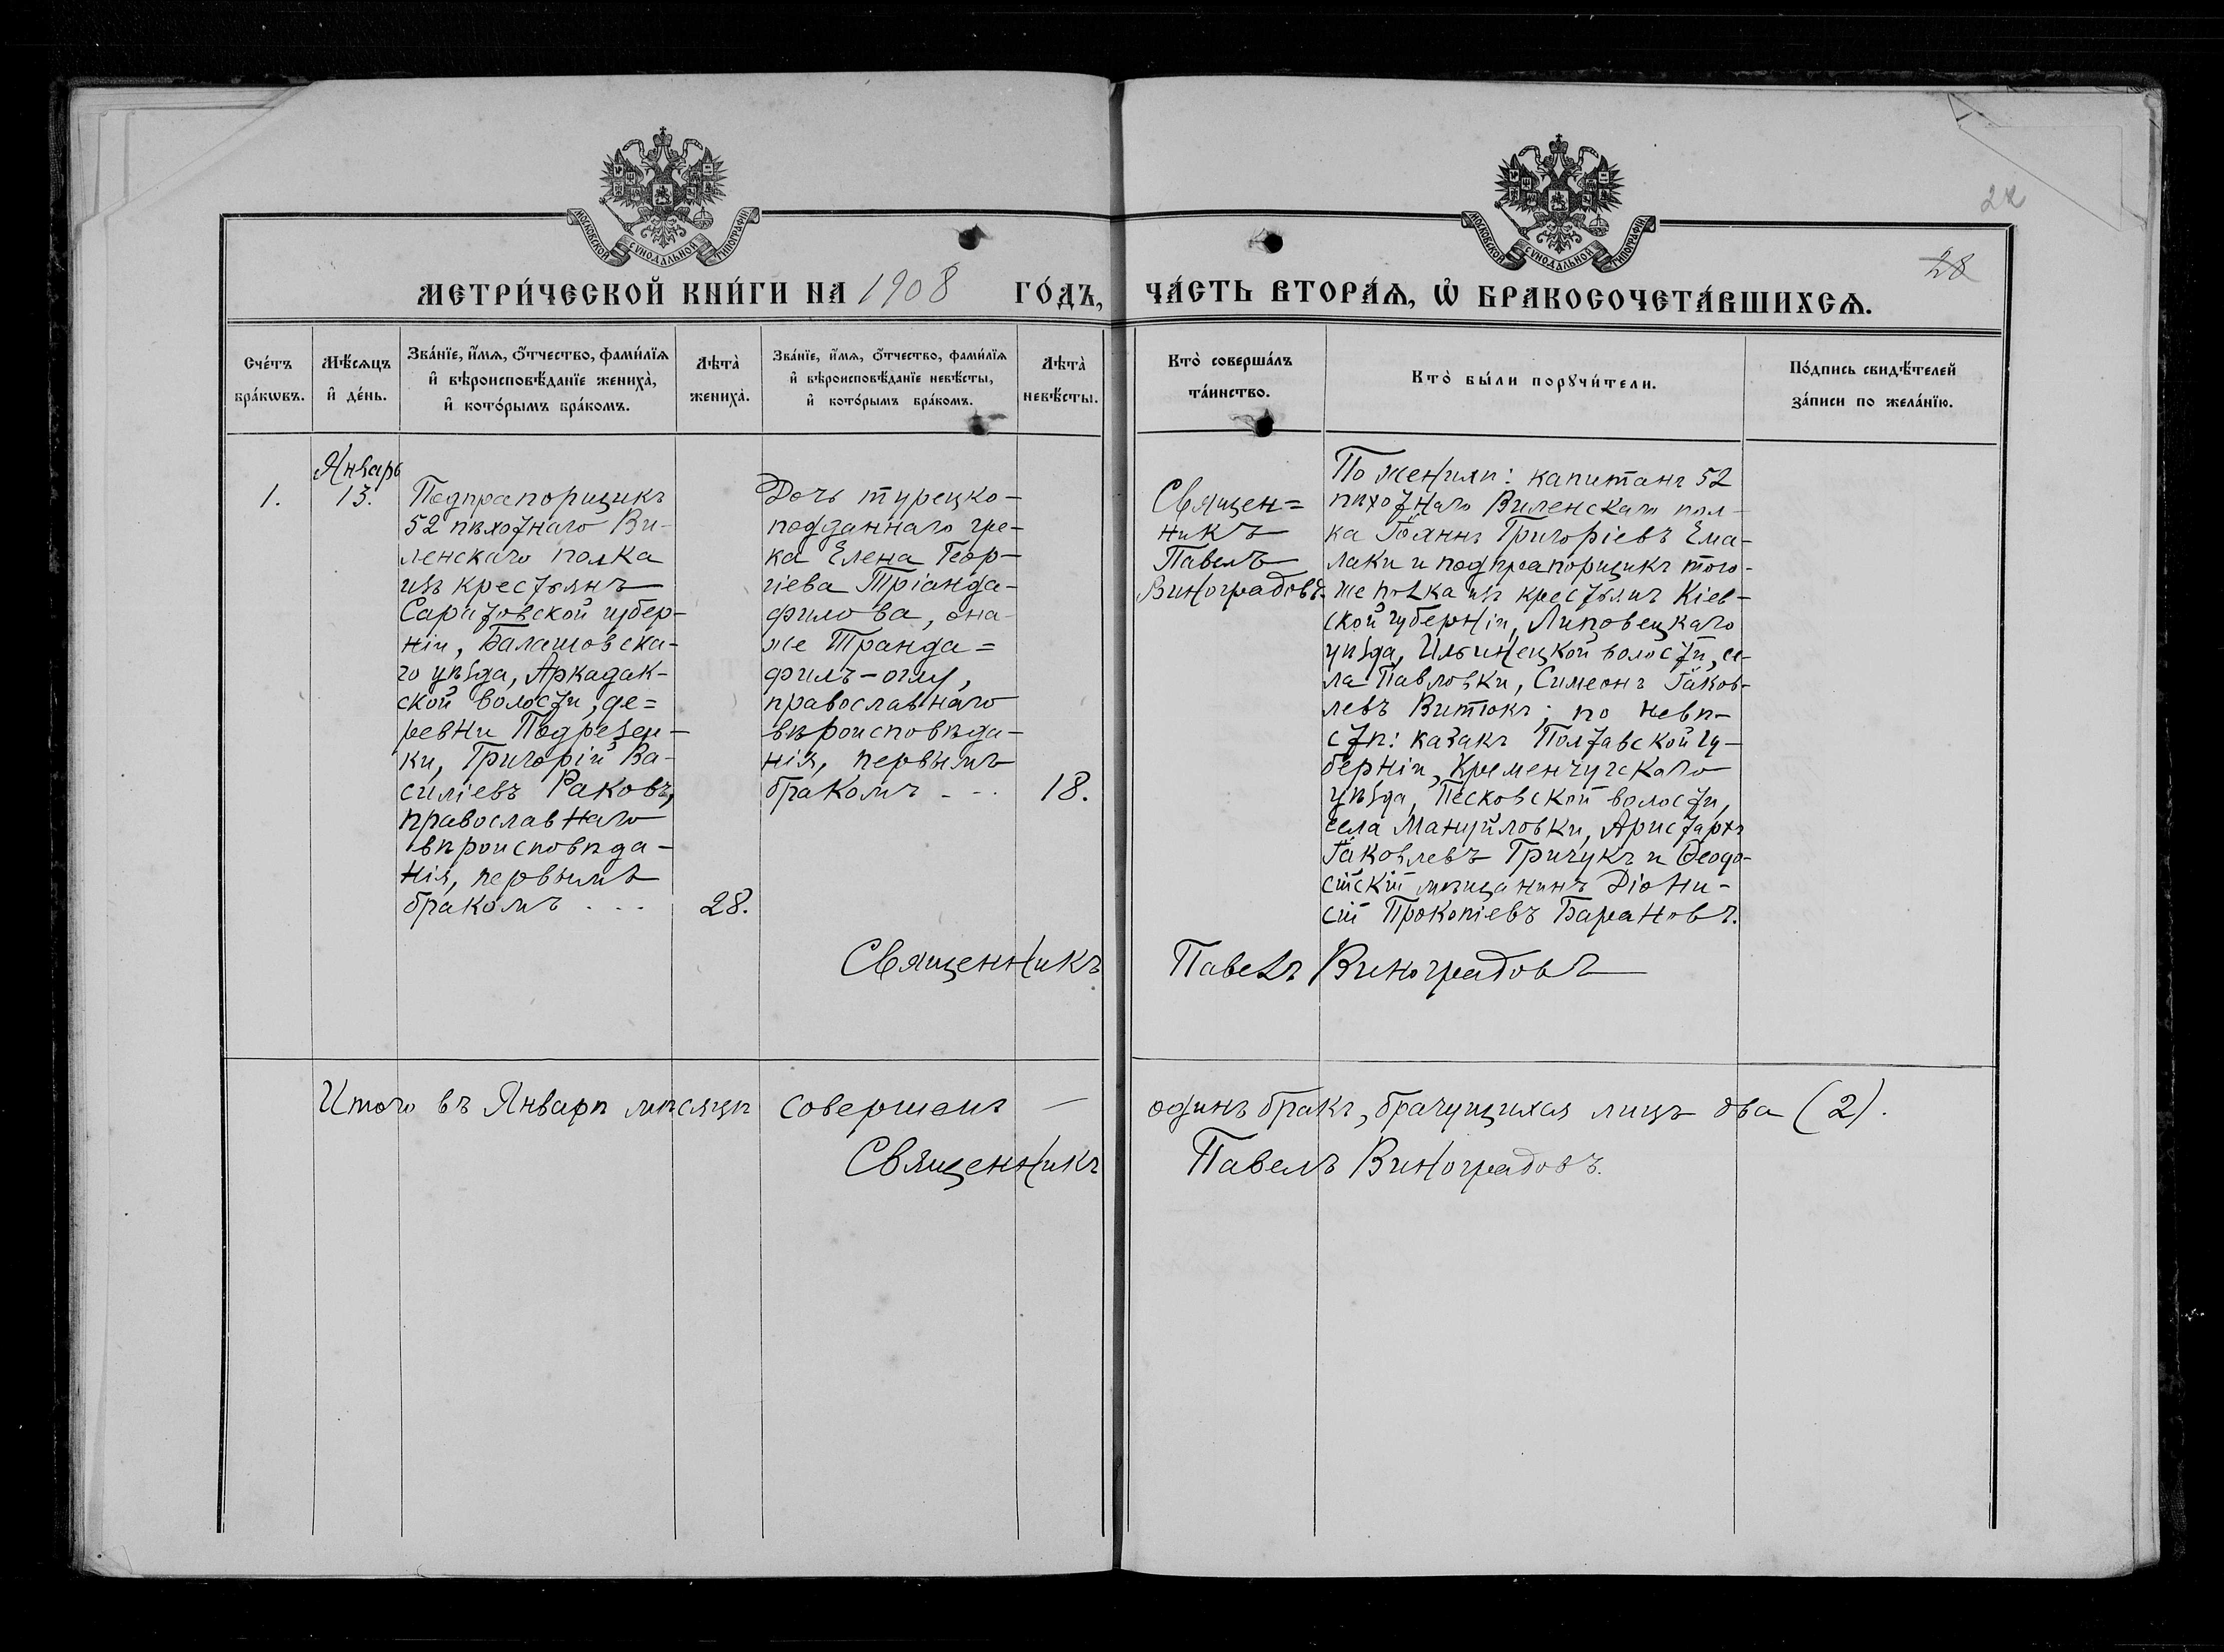 МОСКОВСКОЙ СѴНОДАЛЬНОЙ ТИПОГРАФІИ
МОСКОВСКОЙ СѴНОДАЛЬНОЙ ТИПОГРАФІИ
22
28
МЕТРИ́ЧЕСКОЙ КНИ́ГИ НА 1908 ГО́ДЪ,
ЧА́СТЬ ВТОРА́Ѧ, Ѡ҆ БРАКОСОЧЕТА́ВШИХСѦ.
Сче́тъ
бра́кѡвъ.
Мѣ́сѧцъ
и҆ де́нь.
Зва́нїе, и҆́мѧ, ѻ҆́тчество, фами́лїѧ
и҆ вѣроисповѣ́данїе жениха̀,
и҆ кото́рымъ бра́комъ.
Лѣта̀
жениха̀.
Зва́нїе, и҆́мѧ, ѻ҆́тчество, фами́лїѧ
и҆ вѣроисповѣ́данїе невѣ́сты,
и҆ кото́рымъ бра́комъ.
Лѣта̀
невѣ́сты.
Кто̀ соверша́лъ
та́инство.
Кто̀ бы́ли порꙋчи́тели.
По́дпись свидѣ́телей
за́писи по жела́нїю.
1.
Январь
13.
Подпрапорщикъ
52 пѣхотнаго Ви-
ленскаго полка
изъ крестьянъ
Саратовской губер-
ніи, Балашовска-
го уѣзда, Аркадак-
ской волости, де=
ревни Подрезен-
ки, Григорій Ва-
силіевъ Раковъ,
православнаго
вѣроисповѣда-
нія, первымъ
бракомъ . . .
28.
Дочь турецко-
подданнаго гре-
ка Елена Геор-
гіева Тріанда-
филова, она-
же Транда=
филъ-оглу,
православнаго
вѣроисповѣда-
нія, первымъ
бракомъ - - -
18.
Священ=
никъ
Павелъ
Виноградовъ
По жениху: капитанъ 52
пѣхотнаго Виленскаго пол-
ка Іоаннъ Григоріевъ Ема-
лаки и подпрапорщикъ того-
же полка изъ крестьянъ Кіев-
ской губерніи, Липовецкаго
уѣзда, Ильинецкой волости, се-
ла Павловки, Симеонъ Іаков-
левъ Витюкъ; по невѣ-
стѣ: казакъ Полтавской гу-
берніи, Кременчугскаго
уѣзда, Песковской волости,
села Мануйловки, Аристархъ
Іаковлевъ Гричукъ и Ѳеодо-
сійскій мѣщанинъ Діони-
сій Прокопіевъ Барановъ.
Священникъ Павелъ Виноградовъ
Итого въ Январѣ мѣсяцѣ совершенъ — одинъ бракъ, брачущихся лицъ два (2).
Священникъ Павелъ Виноградовъ.